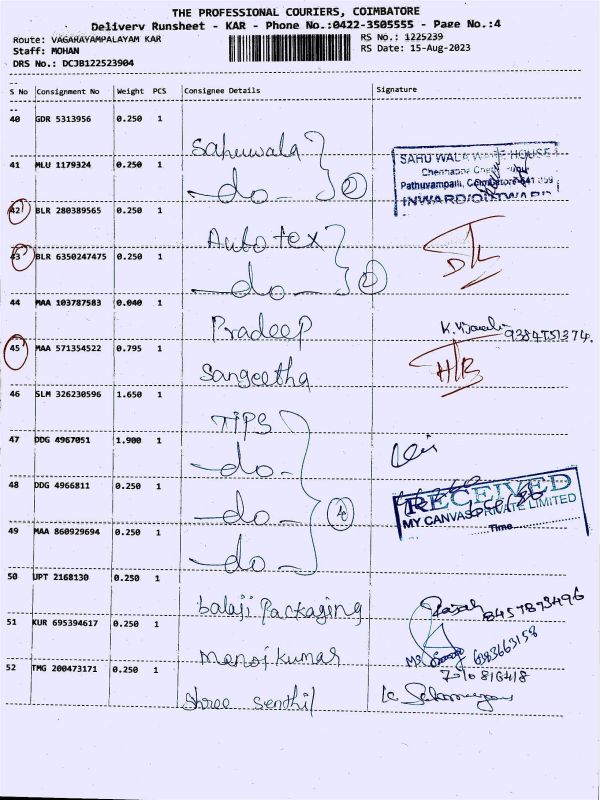 THE PROFESSIONAL COURIERS, COIMBATORE
Delivery Runsheet - KAR - Phone No.:0422-3505555 - Page No.:4
Route: VAGARAYAMPALAYAM KAR RS No.: 1225239
Staff: MOHAN RS Date: 15-Aug-2023
DRS No.: DCJB122523904
S No Consignment No Weight PCS Consignee Details Signature
40 GDR 5313956 0.250 1
Sahuwala
SAHU WALA WARE HOUSE
41 MLU 1179324 0.250 1
Chennappa
-do- 2
Pathuvampalli, Coimbatore-641 659
INWARD/OUTWARD
42 BLR 280389565 0.250 1
Autotex
DL
43 BLR 6350247475 0.250 1
-do- 2
44 MAA 103787583 0.040 1
Pradeep
9384551374.
45 MAA 571354522 0.795 1
Sangeetha
HB
46 SLM 326230596 1.650 1
TIPS
47 DDG 4967051 1.900 1
-do-
48 DDG 4966811 0.250 1
RECEIVED
-do- 4
MY CANVAS PRIVATE LIMITED
Time
49 MAA 860929694 0.250 1
-do-
50 UPT 2168130 0.250 1
balaji Packaging
8457873496
51 KUR 695394617 0.250 1
Manoj kumar
6383663158
52 TMG 200473171 0.250 1
7010816418
Shree Senthil